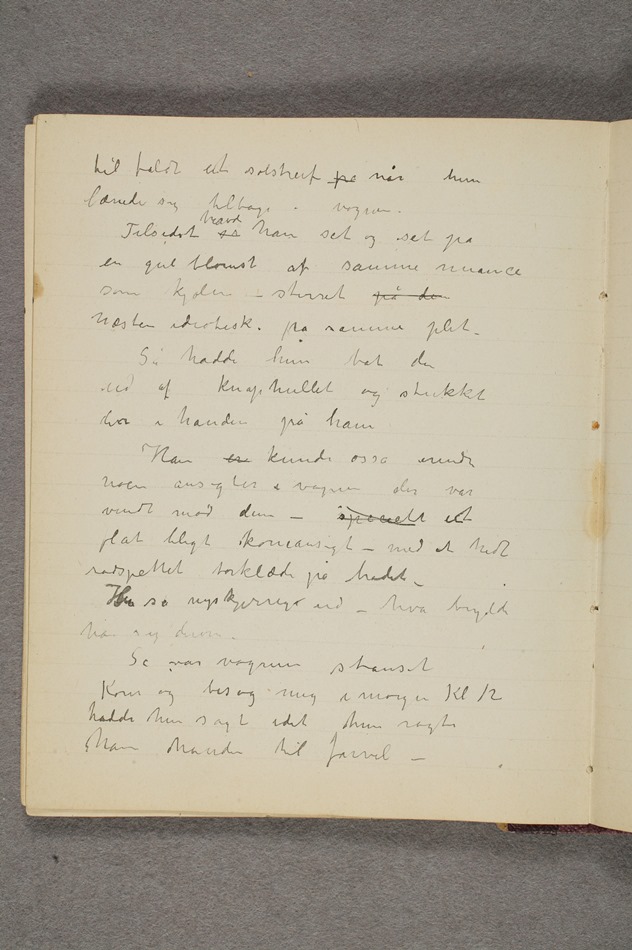 til faldt et solstreif på når hun
lænede sig tilbage i vognen.
Tilsidst havde så han set og set på
en gul blomst af samme nuance
som kjolen – stirret på den
næsten idiotisk. på samme plet.
Så hadde hun tat den
ud af knaphullet og stukket
den i handen på ham
Han er kunde også
noen ansigter i vognen der var
vendt mod dem – specielt et
plat blegt koneansigt – med et hvidt
rødspettet tørklæde på hodet –
Hun så nysgjerrige ud – hva brydde
han sig derom.
Så var vognen stanset
Kom og besøg mig i morgen Kl 12
hadde hun sagt idet hun ragte
ham handen til farvel –